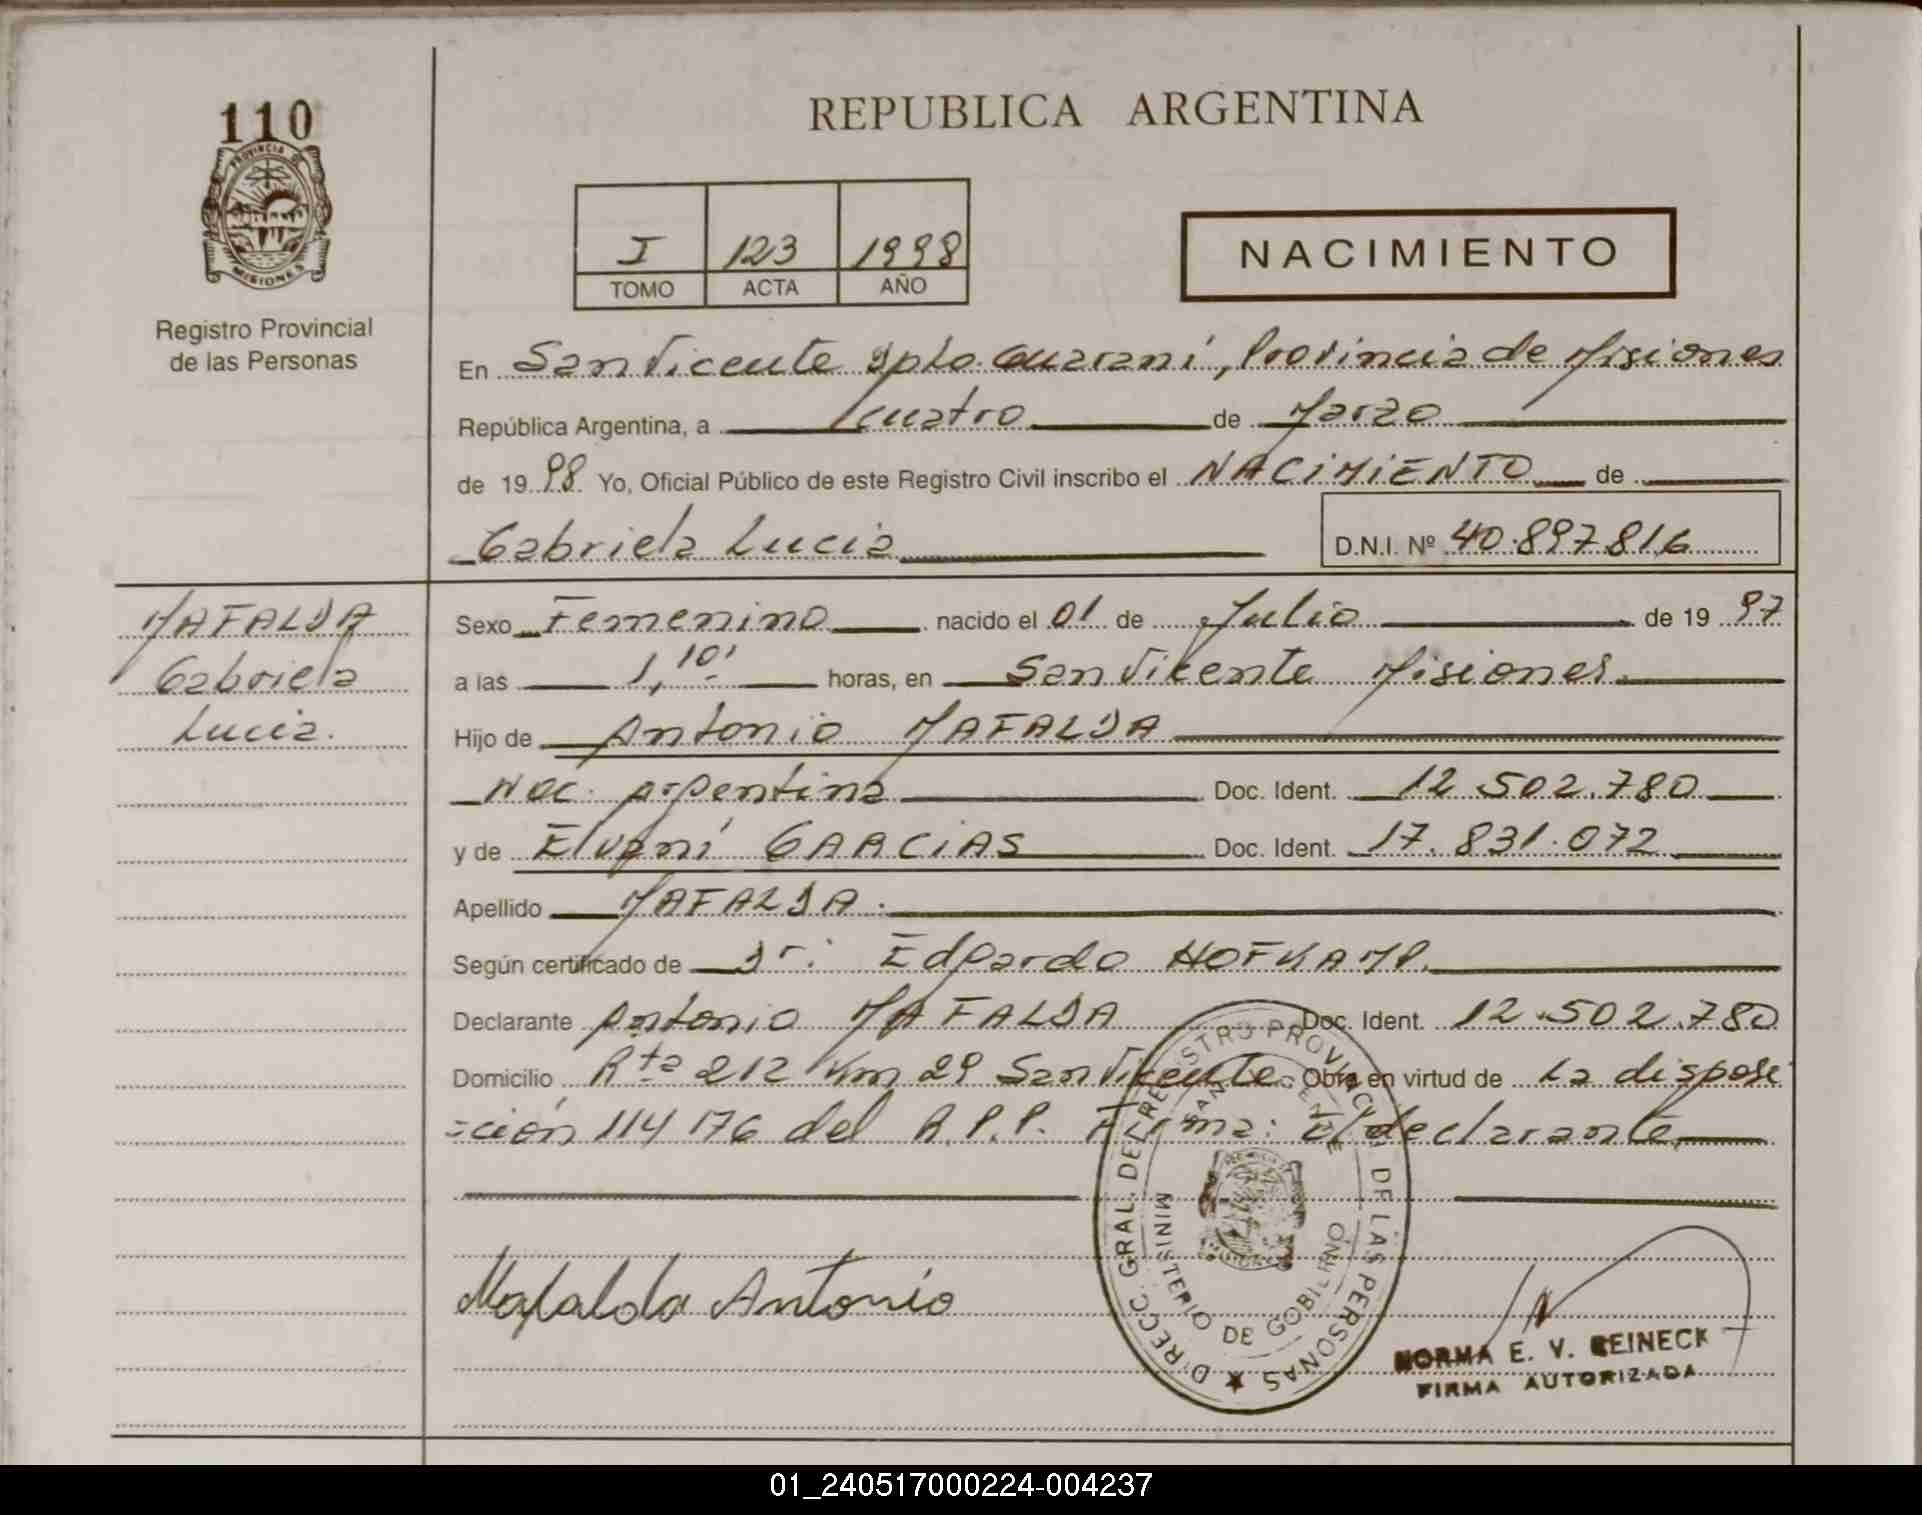 110
PROVINCIA DE
MISIONES
Registro Provincial
de las Personas
REPUBLICA ARGENTINA
I 123 1998
TOMO ACTA AÑO
NACIMIENTO
En San Vicente Dpto. Guaraní, Provincia de Misiones
República Argentina, a cuatro de Marzo
de 1998 Yo, Oficial Público de este Registro Civil inscribo el NACIMIENTO de
Gabriela Lucia D.N.I. Nº 40.897.816
MAFALDA
Gabriela
Lucia.
Sexo Femenino nacido el 01 de Julio de 1997
a las 1,10' horas, en San Vicente Misiones.
Hijo de Antonio MAFALDA
Nac. Argentina Doc. Ident. 12.502.780
y de Elvani GARCIAS Doc. Ident. 17.831.072
Apellido MAFALDA.
Según certificado de Dr: Edgardo HOFKAMP.
Declarante Antonio MAFALDA Doc. Ident. 12.502.780
Domicilio Rta 212 Km 29 San Vicente. Obra en virtud de La disposi
=ción 114176 del R.P.P. Firma: El declarante.
Mafalda Antonio
DIRECC. GRAL. DEL REGISTRO PROVINCIAL DE LAS PERSONAS
SAN VICENTE
MISIONES
MINISTERIO DE GOBIERNO
NORMA E. V. REINECK
FIRMA AUTORIZADA
01_240517000224-004237